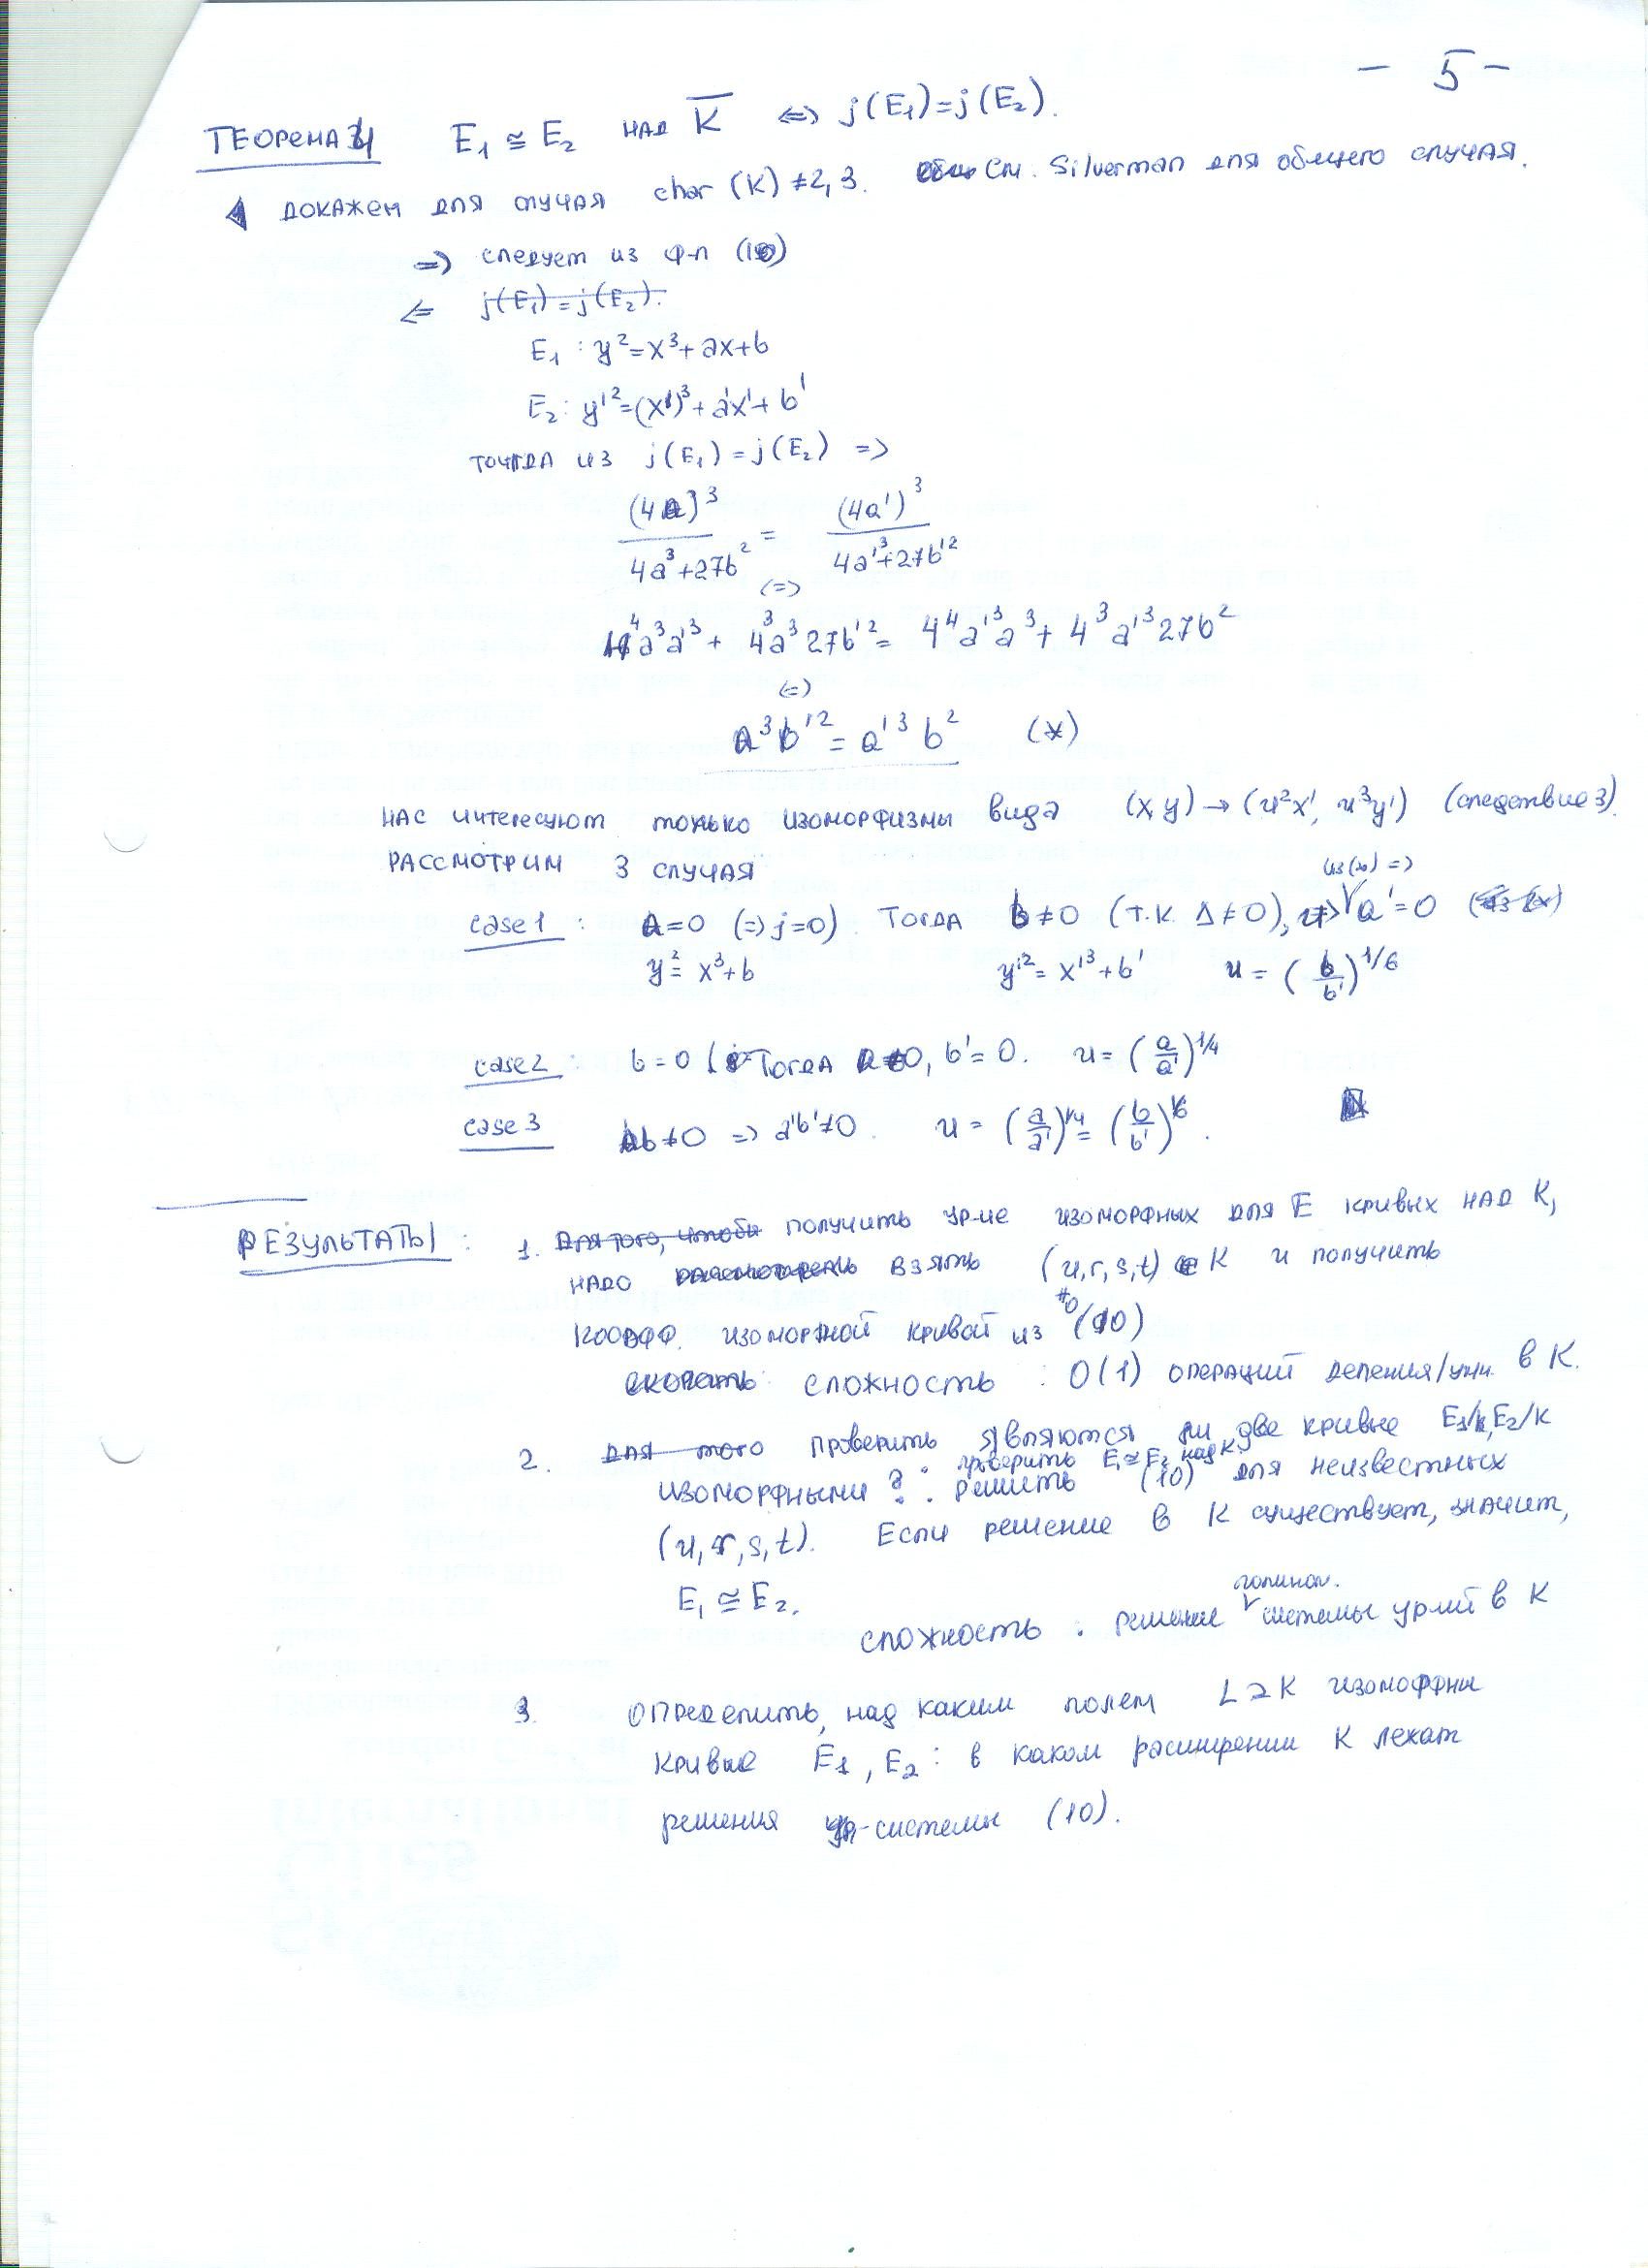 - 5 -
ТЕОРЕМА 4 E₁ ≅ E₂ НАД K̄ ⇔ j(E₁)=j(E₂).
ДОКАЖЕМ ДЛЯ СЛУЧАЯ char (K) ≠ 2, 3. См. Silverman для общего случая.
⇒) следует из ф-л (10)
⇐ j(E₁)=j(E₂).
E₁ : y²=x³+ax+b
E₂ : y'²=(x')³+a'x'+b'
ТОГДА ИЗ j(E₁)=j(E₂) =>
(4a)³ / (4a³+27b²) = (4a')³ / (4a'³+27b'²)
(=)
4⁴a³a'³ + 4³a³27b'² = 4⁴a'³a³ + 4³a'³27b²
(=)
a³b'² = a'³b² (*)
НАС интересуют только изоморфизмы вида (x,y) → (u²x', u³y') (следствие 3).
РАССМОТРИМ 3 СЛУЧАЯ
case 1 : a=0 (=> j=0) Тогда b≠0 (т.к. Δ≠0), из (*) => a'=0
y²= x³+b y'²= x'³+b' u = (b/b')^1/6
case 2 : b=0 Тогда a≠0, b'=0. u = (a/a')^1/4
case 3 ab≠0 => a'b'≠0. u = (a/a')^1/4 = (b/b')^1/6.
РЕЗУЛЬТАТЫ : 1. Для того, чтобы получить ур-ие изоморфных для E кривых НАД K,
НАДО взять (u,r,s,t) ∈ K и получить
≠0
коэфф. изоморфной кривой из (10)
сложность : O(1) операций деления/умн. в K.
2. для того проверить являются ли две кривые E₁/K, E₂/K
проверить E₁≅E₂ над K
изоморфными ? : решить (10) для неизвестных
(u, r, s, t). Если решение в K существует, значит,
E₁ ≅ E₂.
полином.
сложность : решение системы ур-ий в K
3. Определить, над каким полем L⊇K изоморфны
кривые E₁, E₂ : в каком расширении K лежат
решения системы (10).